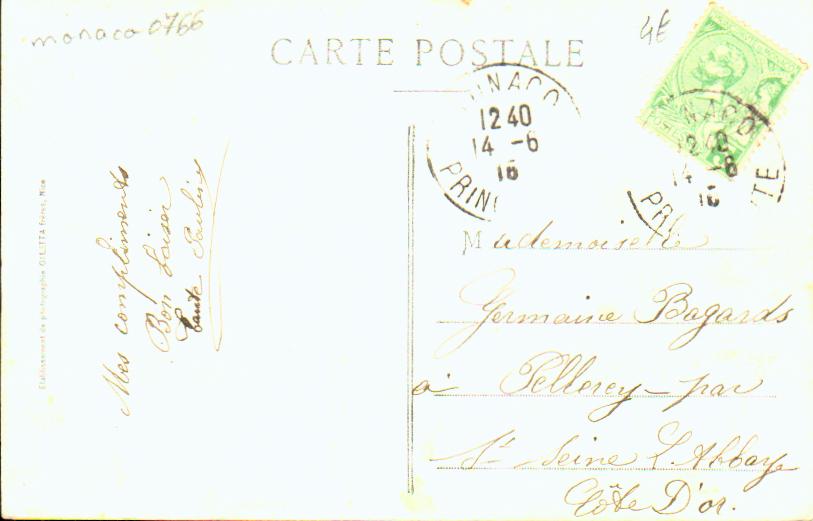 monaco 0766
4€
CARTE POSTALE
MONACO
1240
14 -6
16
PRIN
NACO
1240
14 -6
16
PR TE
Mademoiselle
Germaine Bagards
à Pellerey - par
St Seine L'Abbaye
Côte D'or.
Mes compliments
Bon baiser
tante Pauline
Etablissement de photographie GILETTA frères, Nice